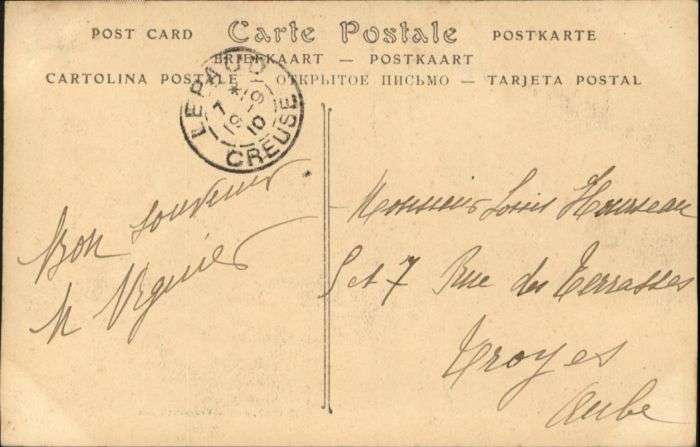 POST CARD Carte Postale POSTKARTE
BRIEFKAART — POSTKAART
CARTOLINA POSTALE — ОТКРЫТОЕ ПИСЬМО — TARJETA POSTAL
LEPAUD
7 *
19-9
10
CREUSE
Bon souvenir
M Viguier
Monsieur Louis
5 et 7 Rue des Terrasses
Troyes
Aube